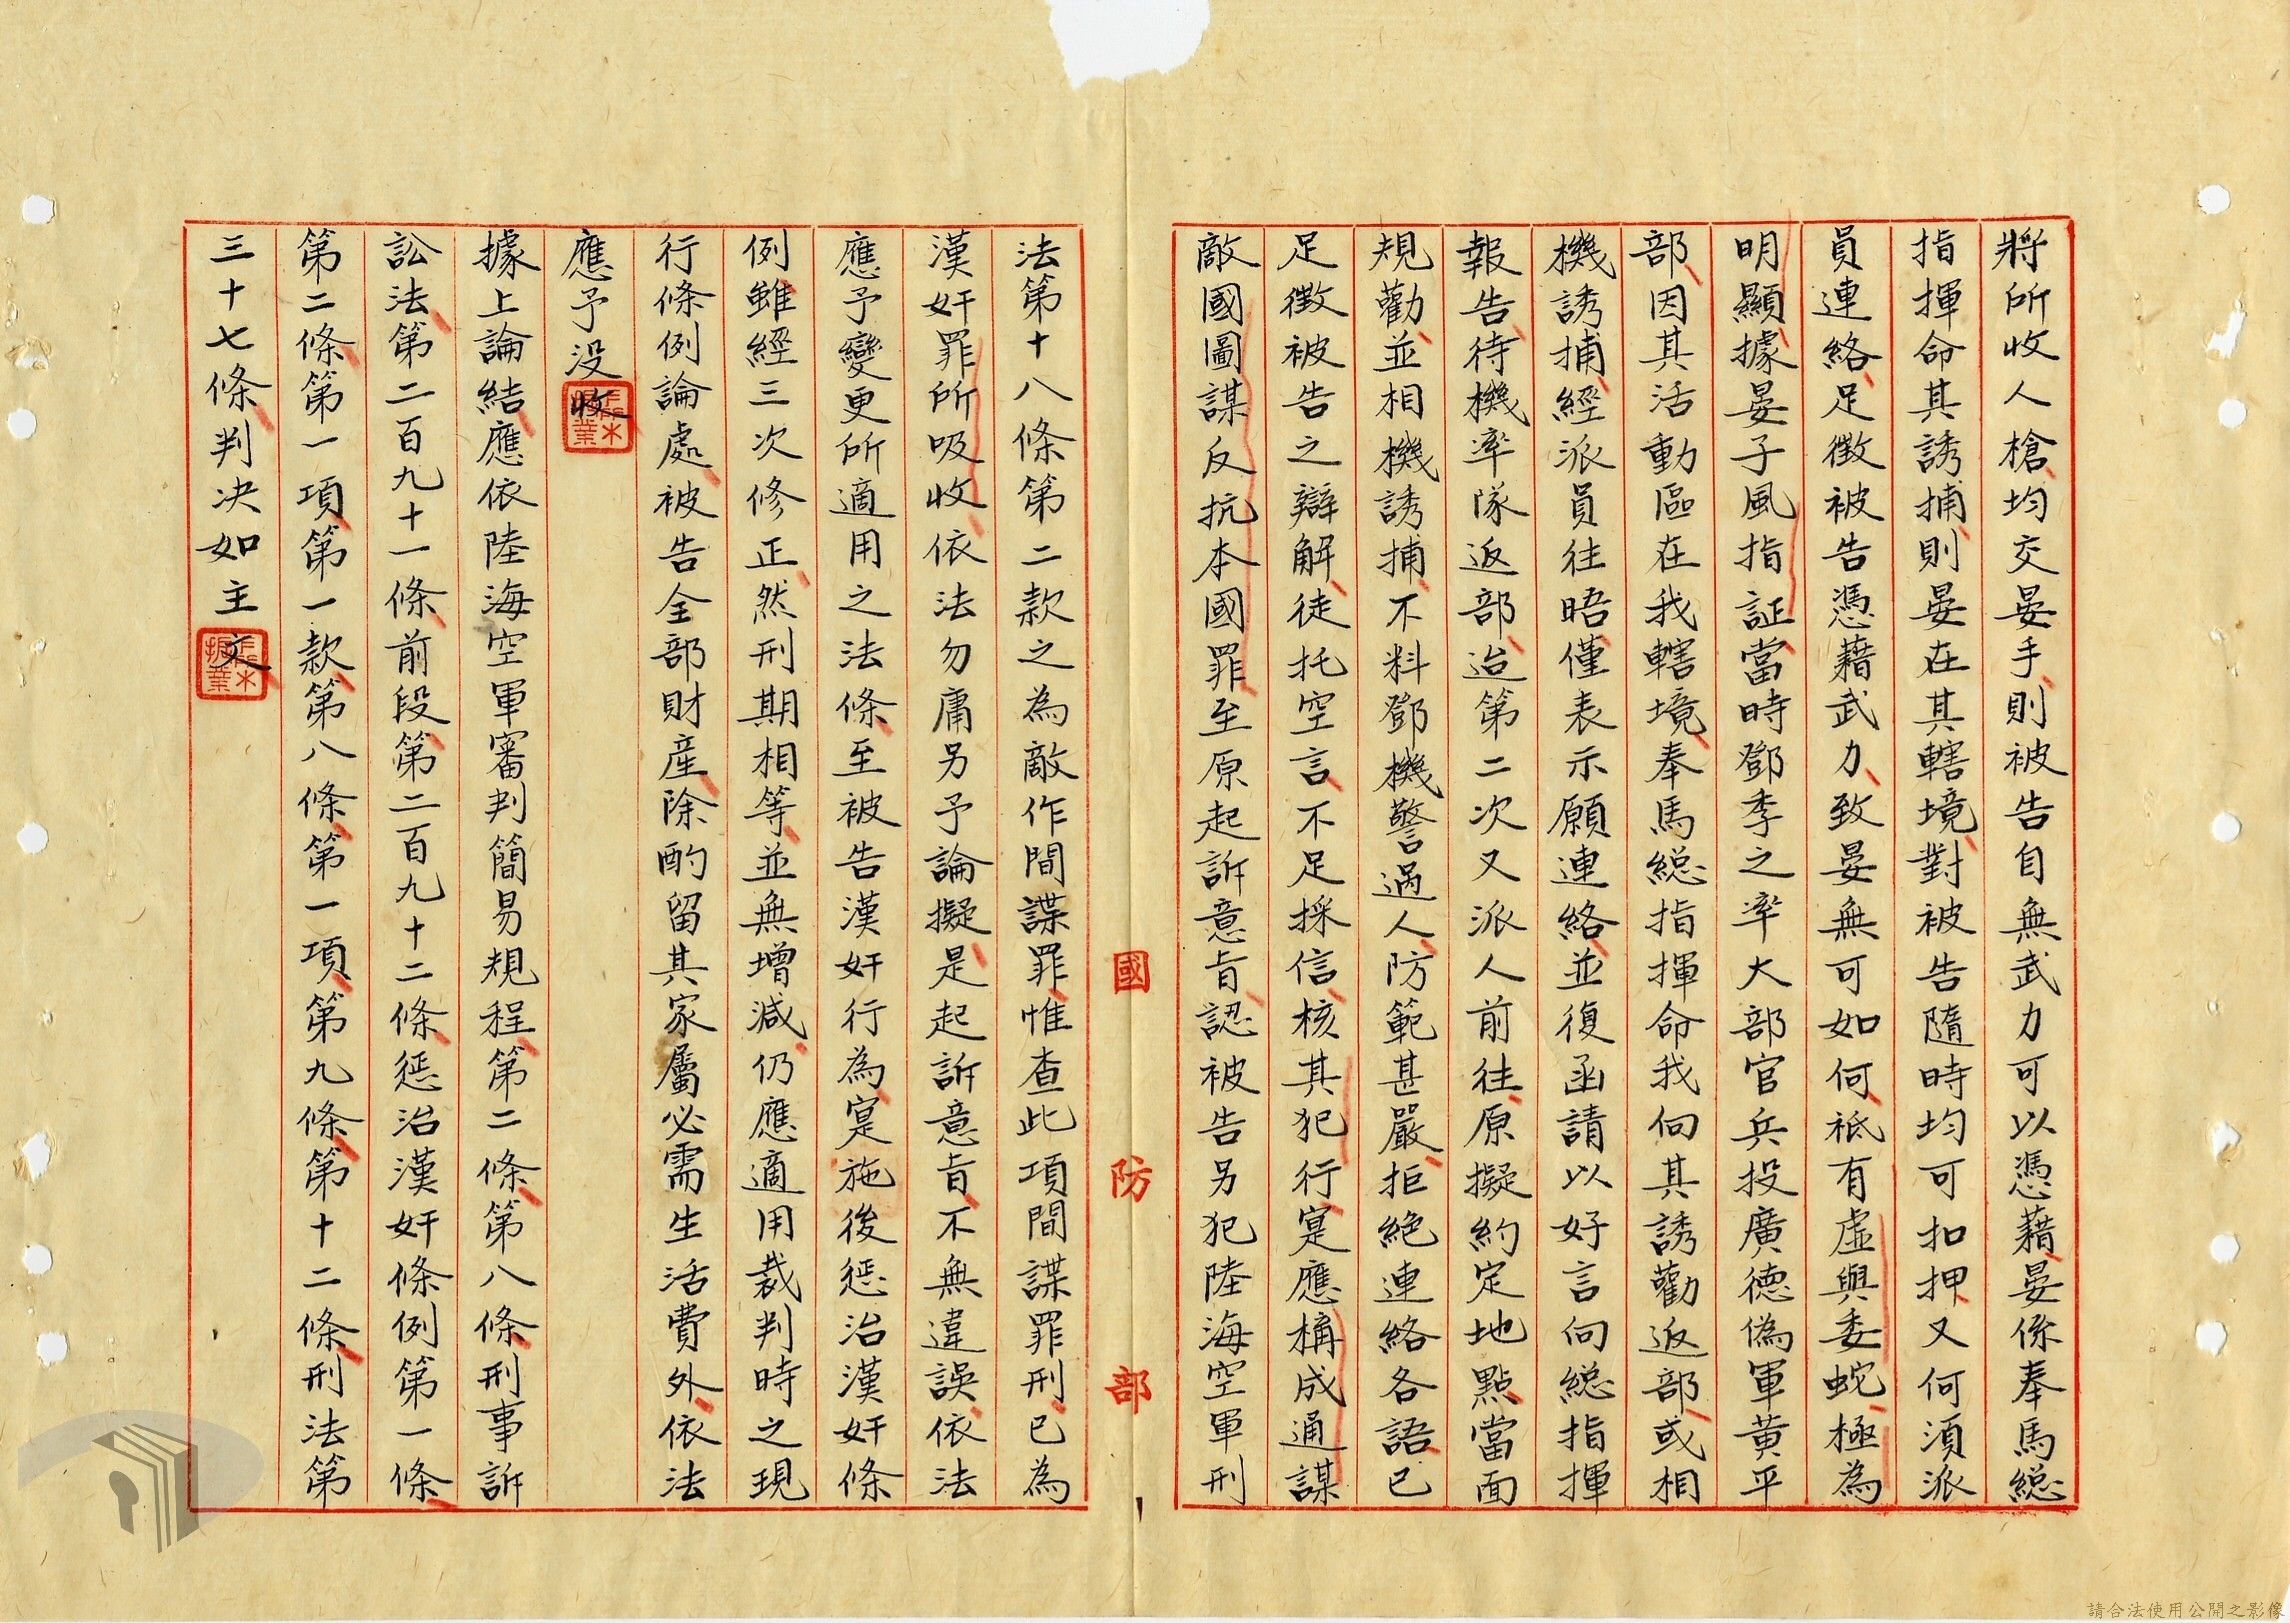 將所收人槍均交晏手則被告自無武力可以憑藉晏係奉馬総
指揮命其誘捕則晏在其轄境對被告隨時均可扣押又何須派
員連絡足徵被告憑藉武力致晏無可如何祇有虛與委蛇極為
明顯據晏子風指証當時鄧季之率大部官兵投廣德偽軍黃平
部因其活動區在我轄境奉馬総指揮命我向其誘勸返部或相
機誘捕經派員往晤僅表示願連絡並復函請以好言向総指揮
報告待機率隊返部迨第二次又派人前往原擬約定地點當面
規勸並相機誘捕不料鄧機警過人防範甚嚴拒絕連絡各語已
足徵被告之辯解徒托空言不足採信核其犯行寔應構成通謀
敵國圖謀反抗本國罪至原起訴意旨認被告另犯陸海空軍刑
國防部
法第十八條第二款之為敵作間諜罪惟查此項間諜罪刑已為
漢奸罪所吸收依法勿庸另予論擬是起訴意旨不無違誤依法
應予變更所適用之法條至被告漢奸行為寔施後懲治漢奸條
例雖經三次修正然刑期相等並無增減仍應適用裁判時之現
行條例論處被告全部財產除酌留其家屬必需生活費外依法
應予没收
據上論結應依陸海空軍審判簡易規程第二條第八條刑事訴
訟法第二百九十一條前段第二百九十二條懲治漢奸條例第一條
第二條第一項第一款第八條第一項第九條第十二條刑法第
三十七條判決如主文
請合法使用公開之影像